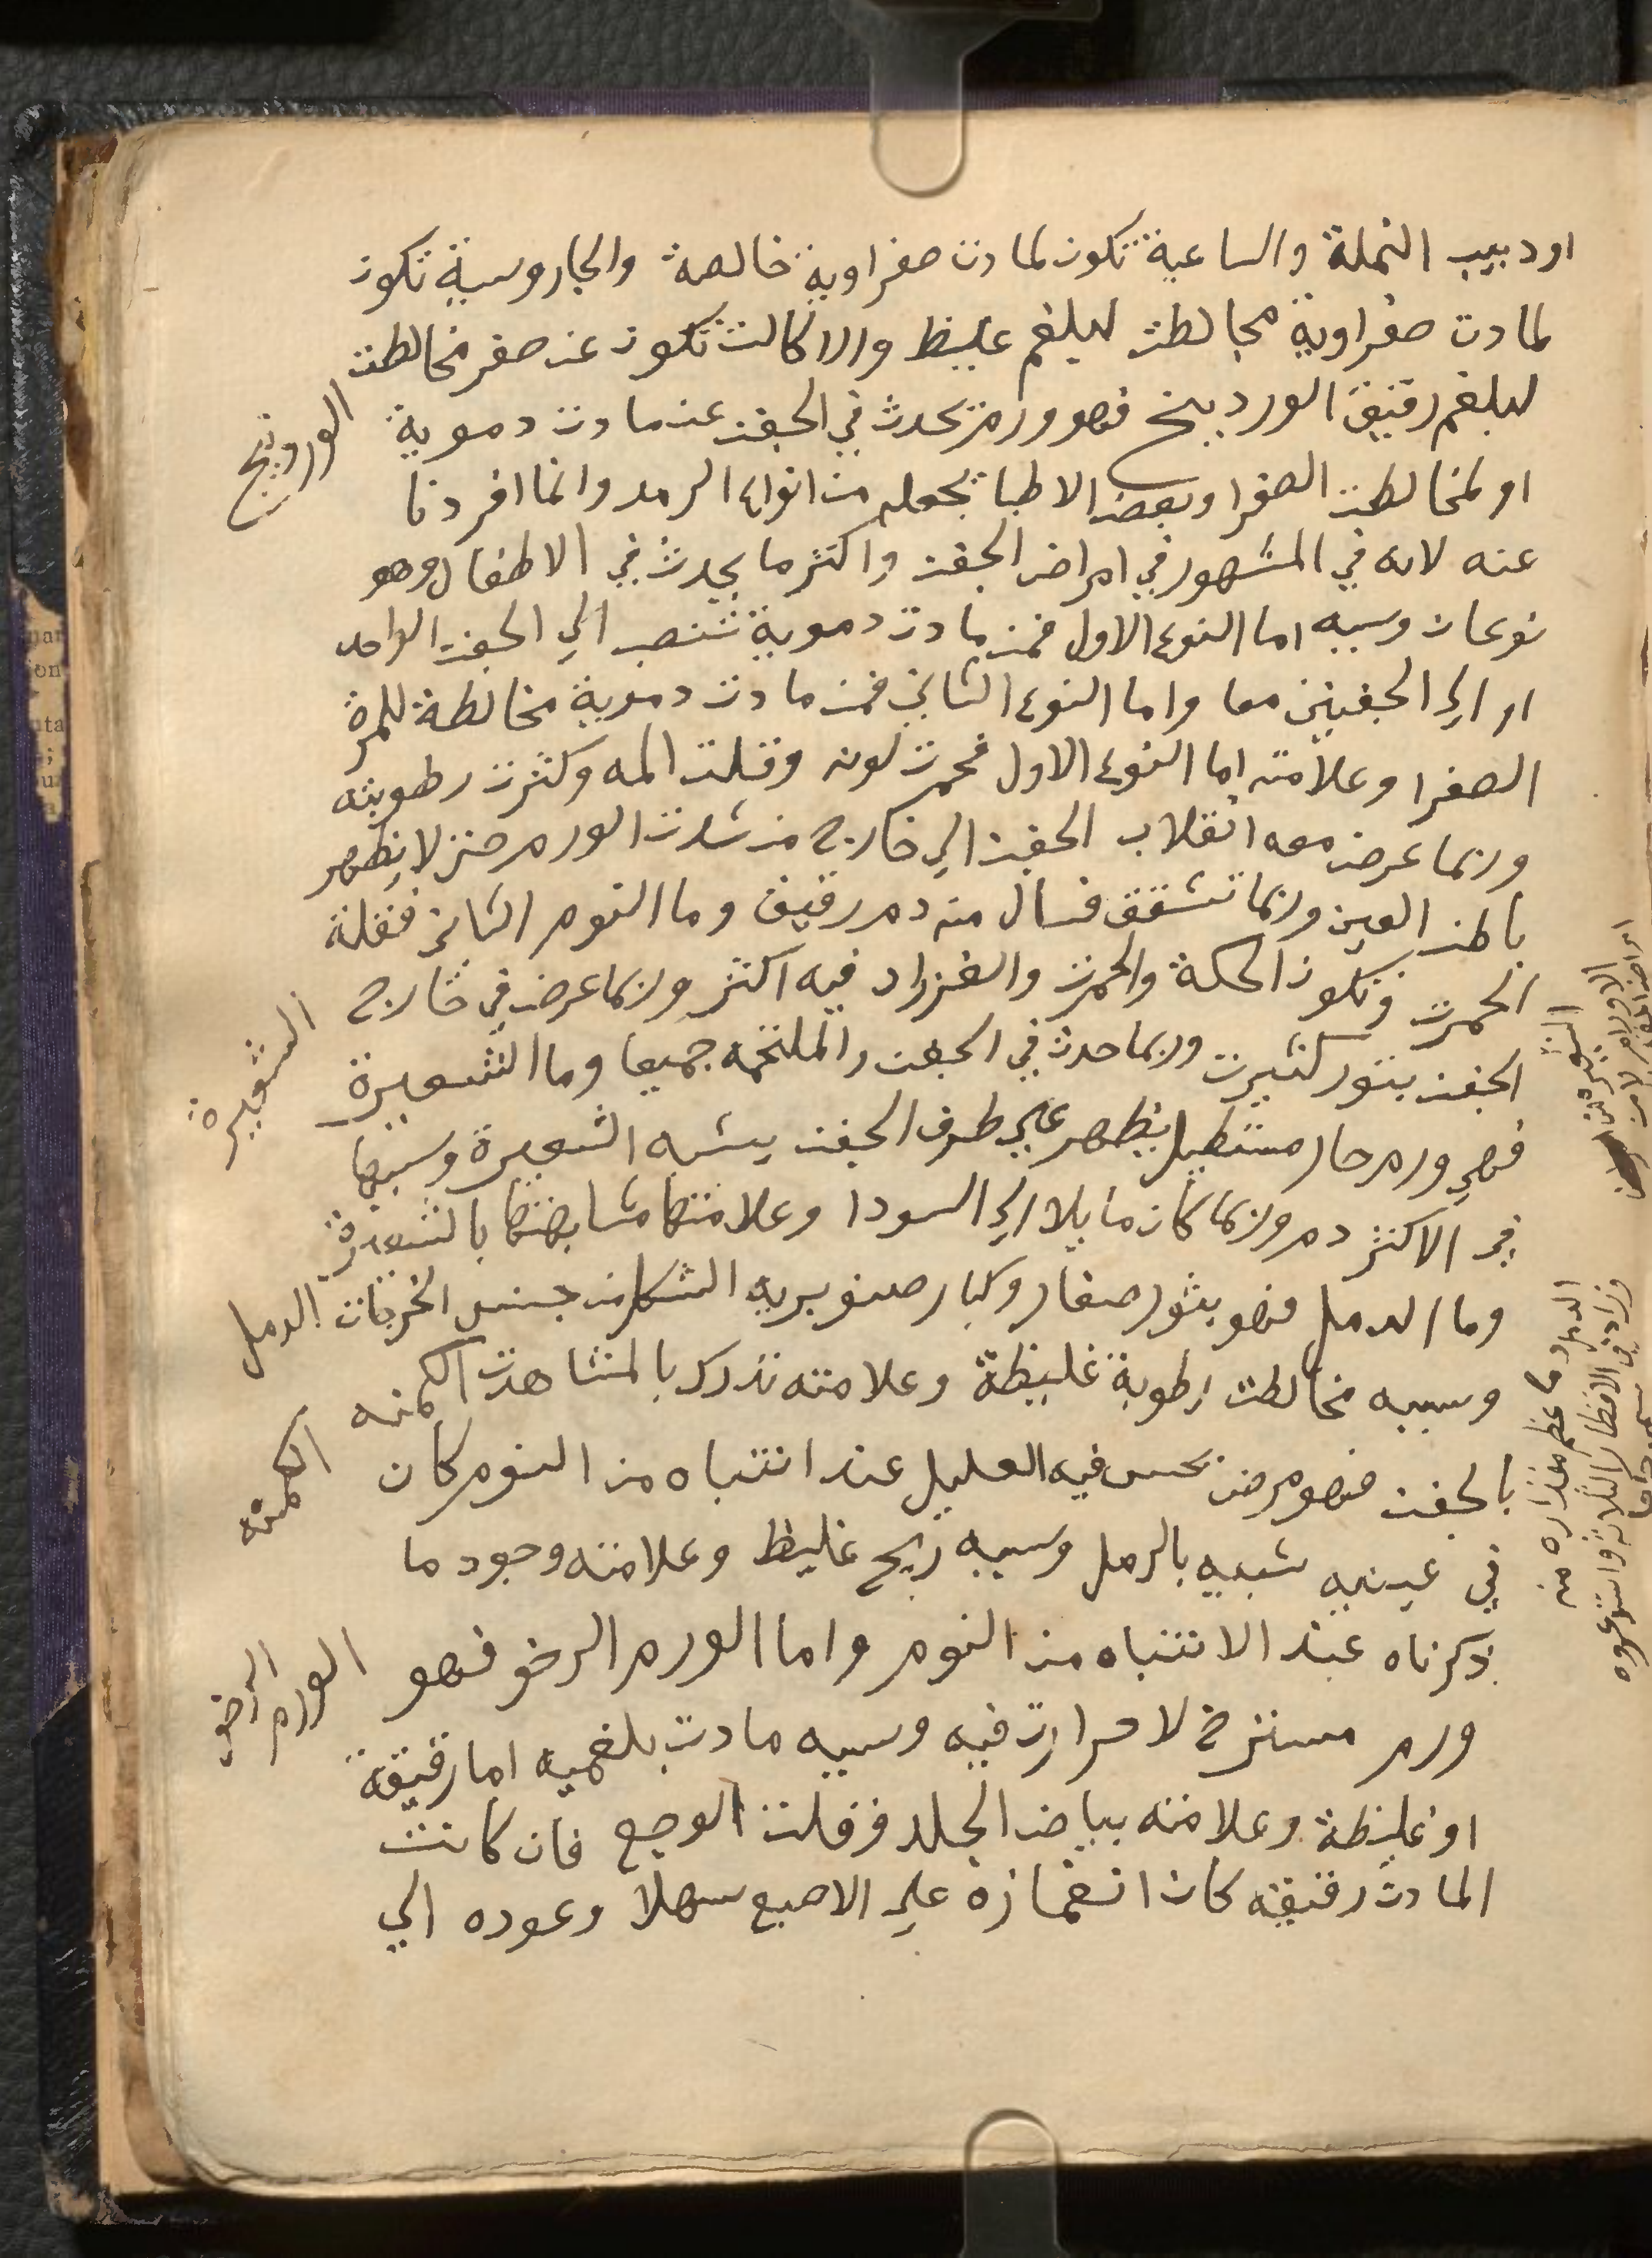 او دبيب النملة والساعية تكون لمادت صفراوية خالصة والجاروسية تكون
لمادت صفراوية مخالطت لبلغم غليظ والاكالت تكون عن صفر مخالطت
لبلغم رقيق الوردينج فهو ورم يحدث في الجفن عن مادت دموية
الوردينج
او لمخالطت الصفرا وبعض الاطبا يجعله من انواع الرمد وانما افردنا
عنه لانه في المشهور في امراض الجفن واكثر ما يحدث في الاطفال وهو
نوعان وسببه اما النوع الاول فمن مادت دموية تنصب الي الجفن الواحد
او الي الجفنين معا واما النوع الثاني فمن مادت دموية مخالطة للمرة
الصفرا وعلامته اما النوع الاول فحمرت لونه وقلت المه وكثرت رطوبته
وربما عرض معه انقلاب الجفن الي خارج من شدت الورم حتي لا يظهر
باطن العين وربما تشقق فسال منه دم رقيق وما النوم الثاني فقلة
الحمرت وتكون الحكة والحمرت والغرزاد فيه اكثر وربما عرض في خارج
الجفن بثور كثيرت وربما حدث في الجفن والملتحمه جميعا وما الشعيرة
الشعيرة
فهي ورم حار مستطيل يظهر علي طرف الجفن يشبه الشعيرة وسببها
في الاكثر دم وربما كان مايلا الي السودا وعلامتها مشابهتها بالشعيرة
وما الدمل فهو بثور صغار وكبار صنوبرية الشكل من جنس الخرجات
الدمل
وسببه مخالطت رطوبة غليظة وعلامته تدرك بالمشاهدت الكمنه
بالجفن فهو مرض يحس فيه العليل عند انتباه من النوم كان
الكمنه
في عينيه شبيه بالرمل وسببه ريح غليظ وعلامته وجود ما
ذكرناه عند الانتباه من النوم واما الورم الرخو فهو
الورم الرخو
ورم مسترخ لا حرارت فيه وسببه مادت بلغميه اما رقيقة
او غليظة وعلامته بياض الجلد وقلت الوجع فان كانت
المادت رقيقه كان انغمازه علي الاصبع سهلا وعوده الي
الدمل وما عظم مقداره من
وزاد في الاقطار الثلاثة واستدعوه